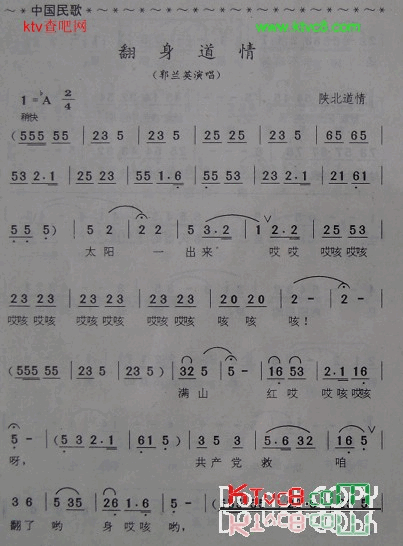 中国民歌
ktv查吧网
www.ktvc8.com
翻身道情
(郭兰英演唱)
1=♭A 2/4 陕北道情
稍快
(555 55 | 23 5 | 23 5 | 25 25 | 23 5 | 65 65 |
53 2·1 | 25 25 | 55 1·6 | 55 53 | 23 2·1 | 21 61 |
5 5 5) | 5 2 | 2 2 | 5 3·2 | 1 2·2 | 5 5 5 5 |
太阳 一 出来 哎 哎 哎咳哎咳
23 23 | 23 23 | 23 23 | 20 20 | 2 - | 2 - |
哎咳哎咳 哎咳哎咳 哎咳哎咳 咳 咳 咳!
(555 55 | 23 5 | 23 5) | 32 5 | 5 - | 16 53 | 2·1 16 |
满山 红哎 哎咳哎咳
5 - | (5 3 2·1 | 61 5) | 3 5 3 | 5·6 32 | 16 5 |
呀, 共产党 救 咱
3 6 | 5 35 | 26 1·6 | 5
翻了 哟 身哎咳 哟,
KTvc8.COM